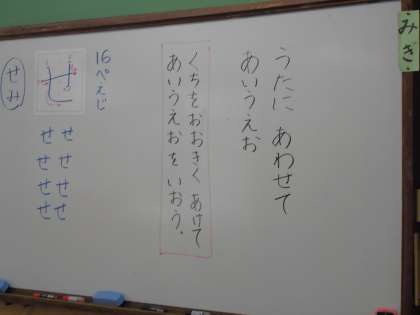 みき
うたに あわせて
あいうえお
くちをおおきく あけて
あいうえおを いおう。
16ぺえじ
せ せ
せ せ
せ せ
せ せ
せみ